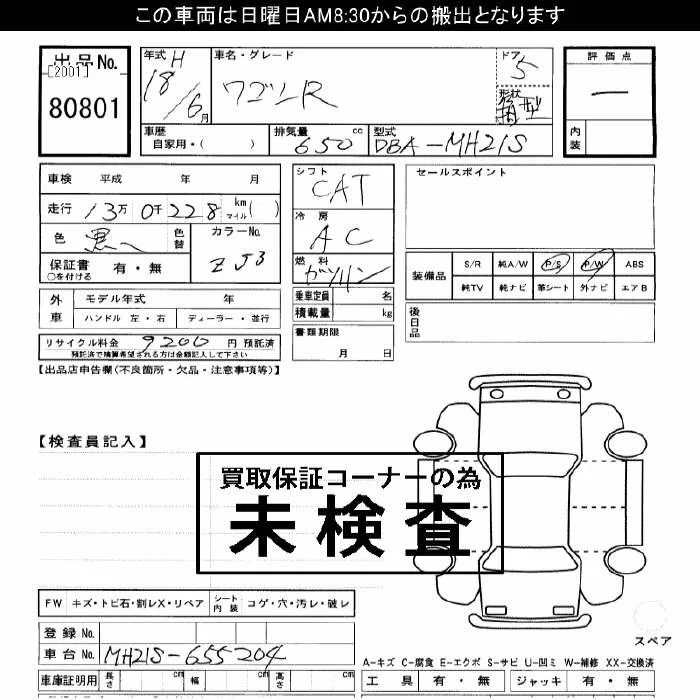 この車両は日曜日AM8:30からの搬出となります
出品No.
[2001]
80801
年式 H
18/6月
車名・グレード
ワゴンR
ドア
5
形状
箱型
評価点
ー
内装
車歴
自家用・( )
排気量 cc
650
型式
DBA-MH21S
車検 平成 年 月
走行 13万 0千 228 km マイル ( )
色 黒へ 色替
カラーNo.
ZJ3
保証書 有・無
○を付ける
外車
モデル年式 年
ハンドル 左・右 ディーラー・並行
リサイクル料金 9200 円 預託済
預託済で精算希望される方は金額記入して下さい
シフト
CAT
冷房
AC
燃料
ガソリン
乗車定員 名
積載量 kg
書類期限
月 日
セールスポイント
装備品
S/R 純A/W P/S P/W ABS
純TV 純ナビ 革シート 外ナビ エアB
後日品
【出品店申告欄(不良箇所・欠品・注意事項等)】
【検査員記入】
買取保証コーナーの為
未検査
FW キズ・トビ石・割レX・リペア シート内装 コゲ・穴・汚レ・破レ
登録No.
車台No. MH21S-655204
車庫証明用 長さ cm 幅 cm 高さ cm
スペア
A-キズ C-腐食 E-エクボ S-サビ U-凹ミ W-補修 XX-交換済
工具 有・無 ジャッキ 有・無